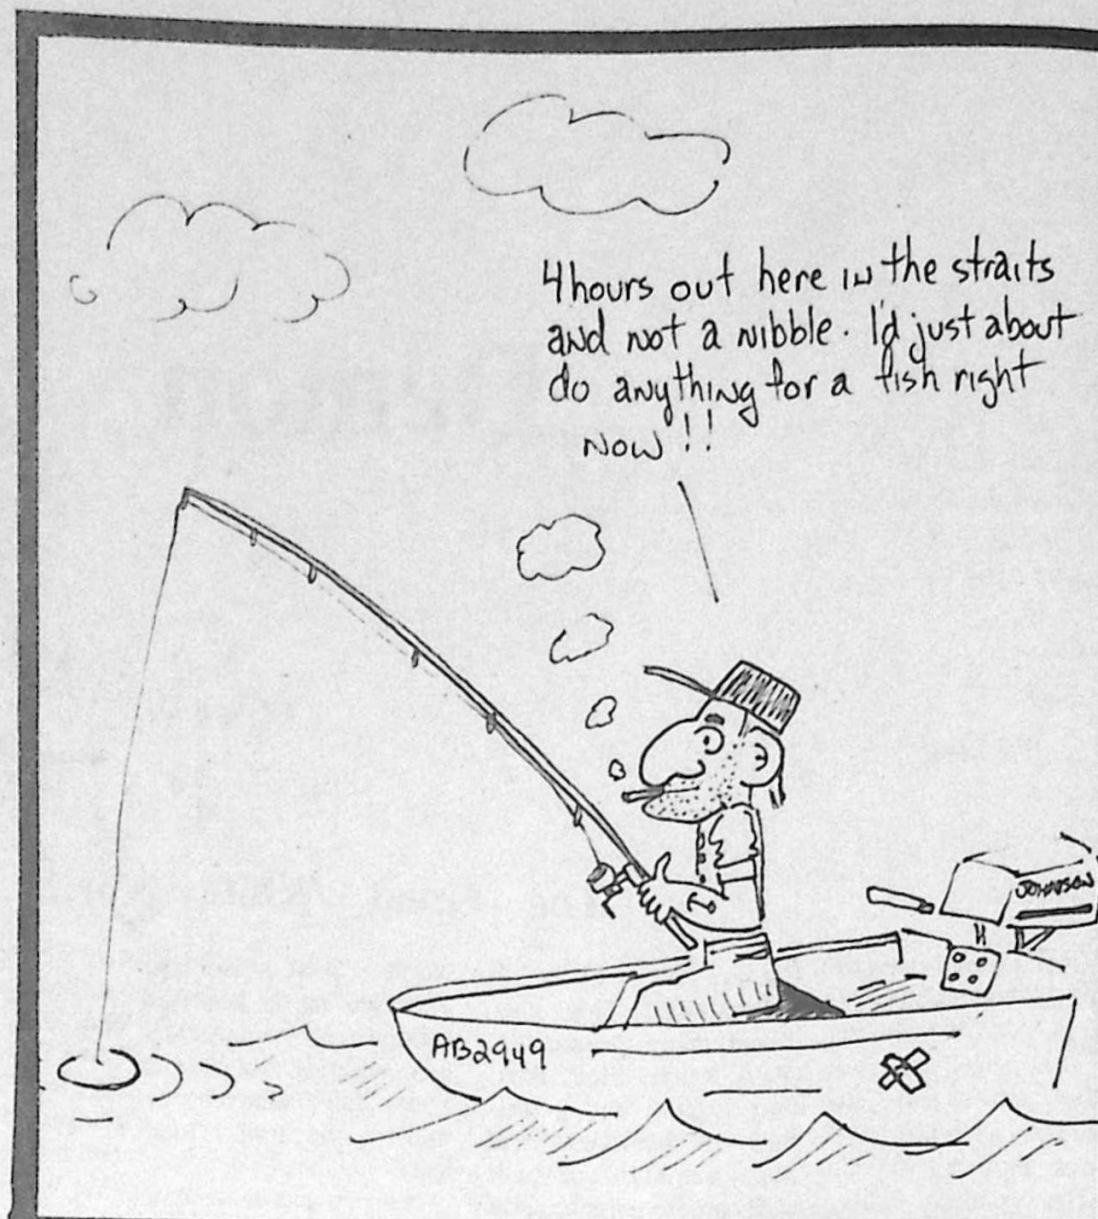 4 hours out here in the straits
and not a nibble. I'd just about
do anything for a fish right
now!!
JOHNSON
AB2949